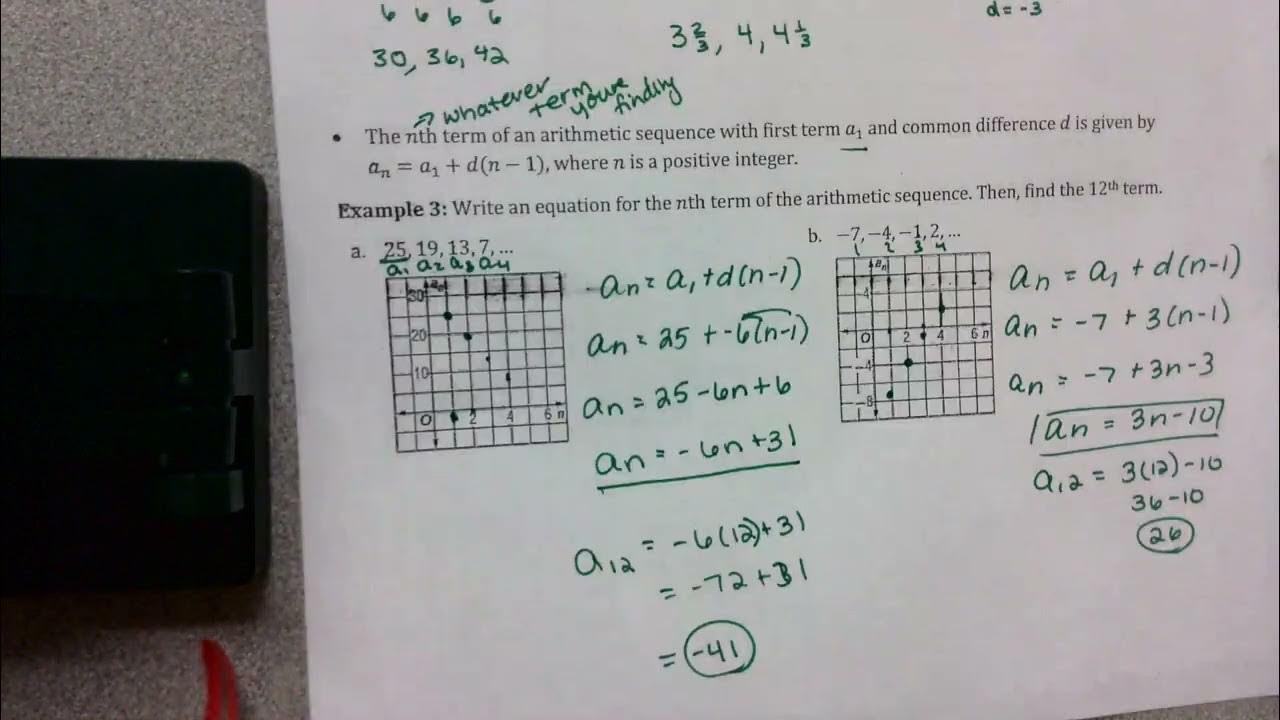 6 6 6 6
d = -3
30, 36, 42
3 2/3, 4, 4 1/3
⇒ whatever term you're finding
• The nth term of an arithmetic sequence with first term a₁ and common difference d is given by
aₙ = a₁ + d(n − 1), where n is a positive integer.
Example 3: Write an equation for the nth term of the arithmetic sequence. Then, find the 12th term.
a. 25, 19, 13, 7, ...
a₁ a₂ a₃ a₄
30 aₙ
20
10
O 2 4 6 n
aₙ = a₁ + d(n-1)
aₙ = 25 + -6(n-1)
aₙ = 25 - 6n + 6
aₙ = -6n + 31
a₁₂ = -6(12) + 31
= -72 + 31
= -41
b. −7, −4, −1, 2, ...
1 2 3 4
aₙ
4
O 2 4 6 n
−4
−8
aₙ = a₁ + d(n-1)
aₙ = -7 + 3(n-1)
aₙ = -7 + 3n - 3
aₙ = 3n - 10
a₁₂ = 3(12) - 10
36 - 10
26